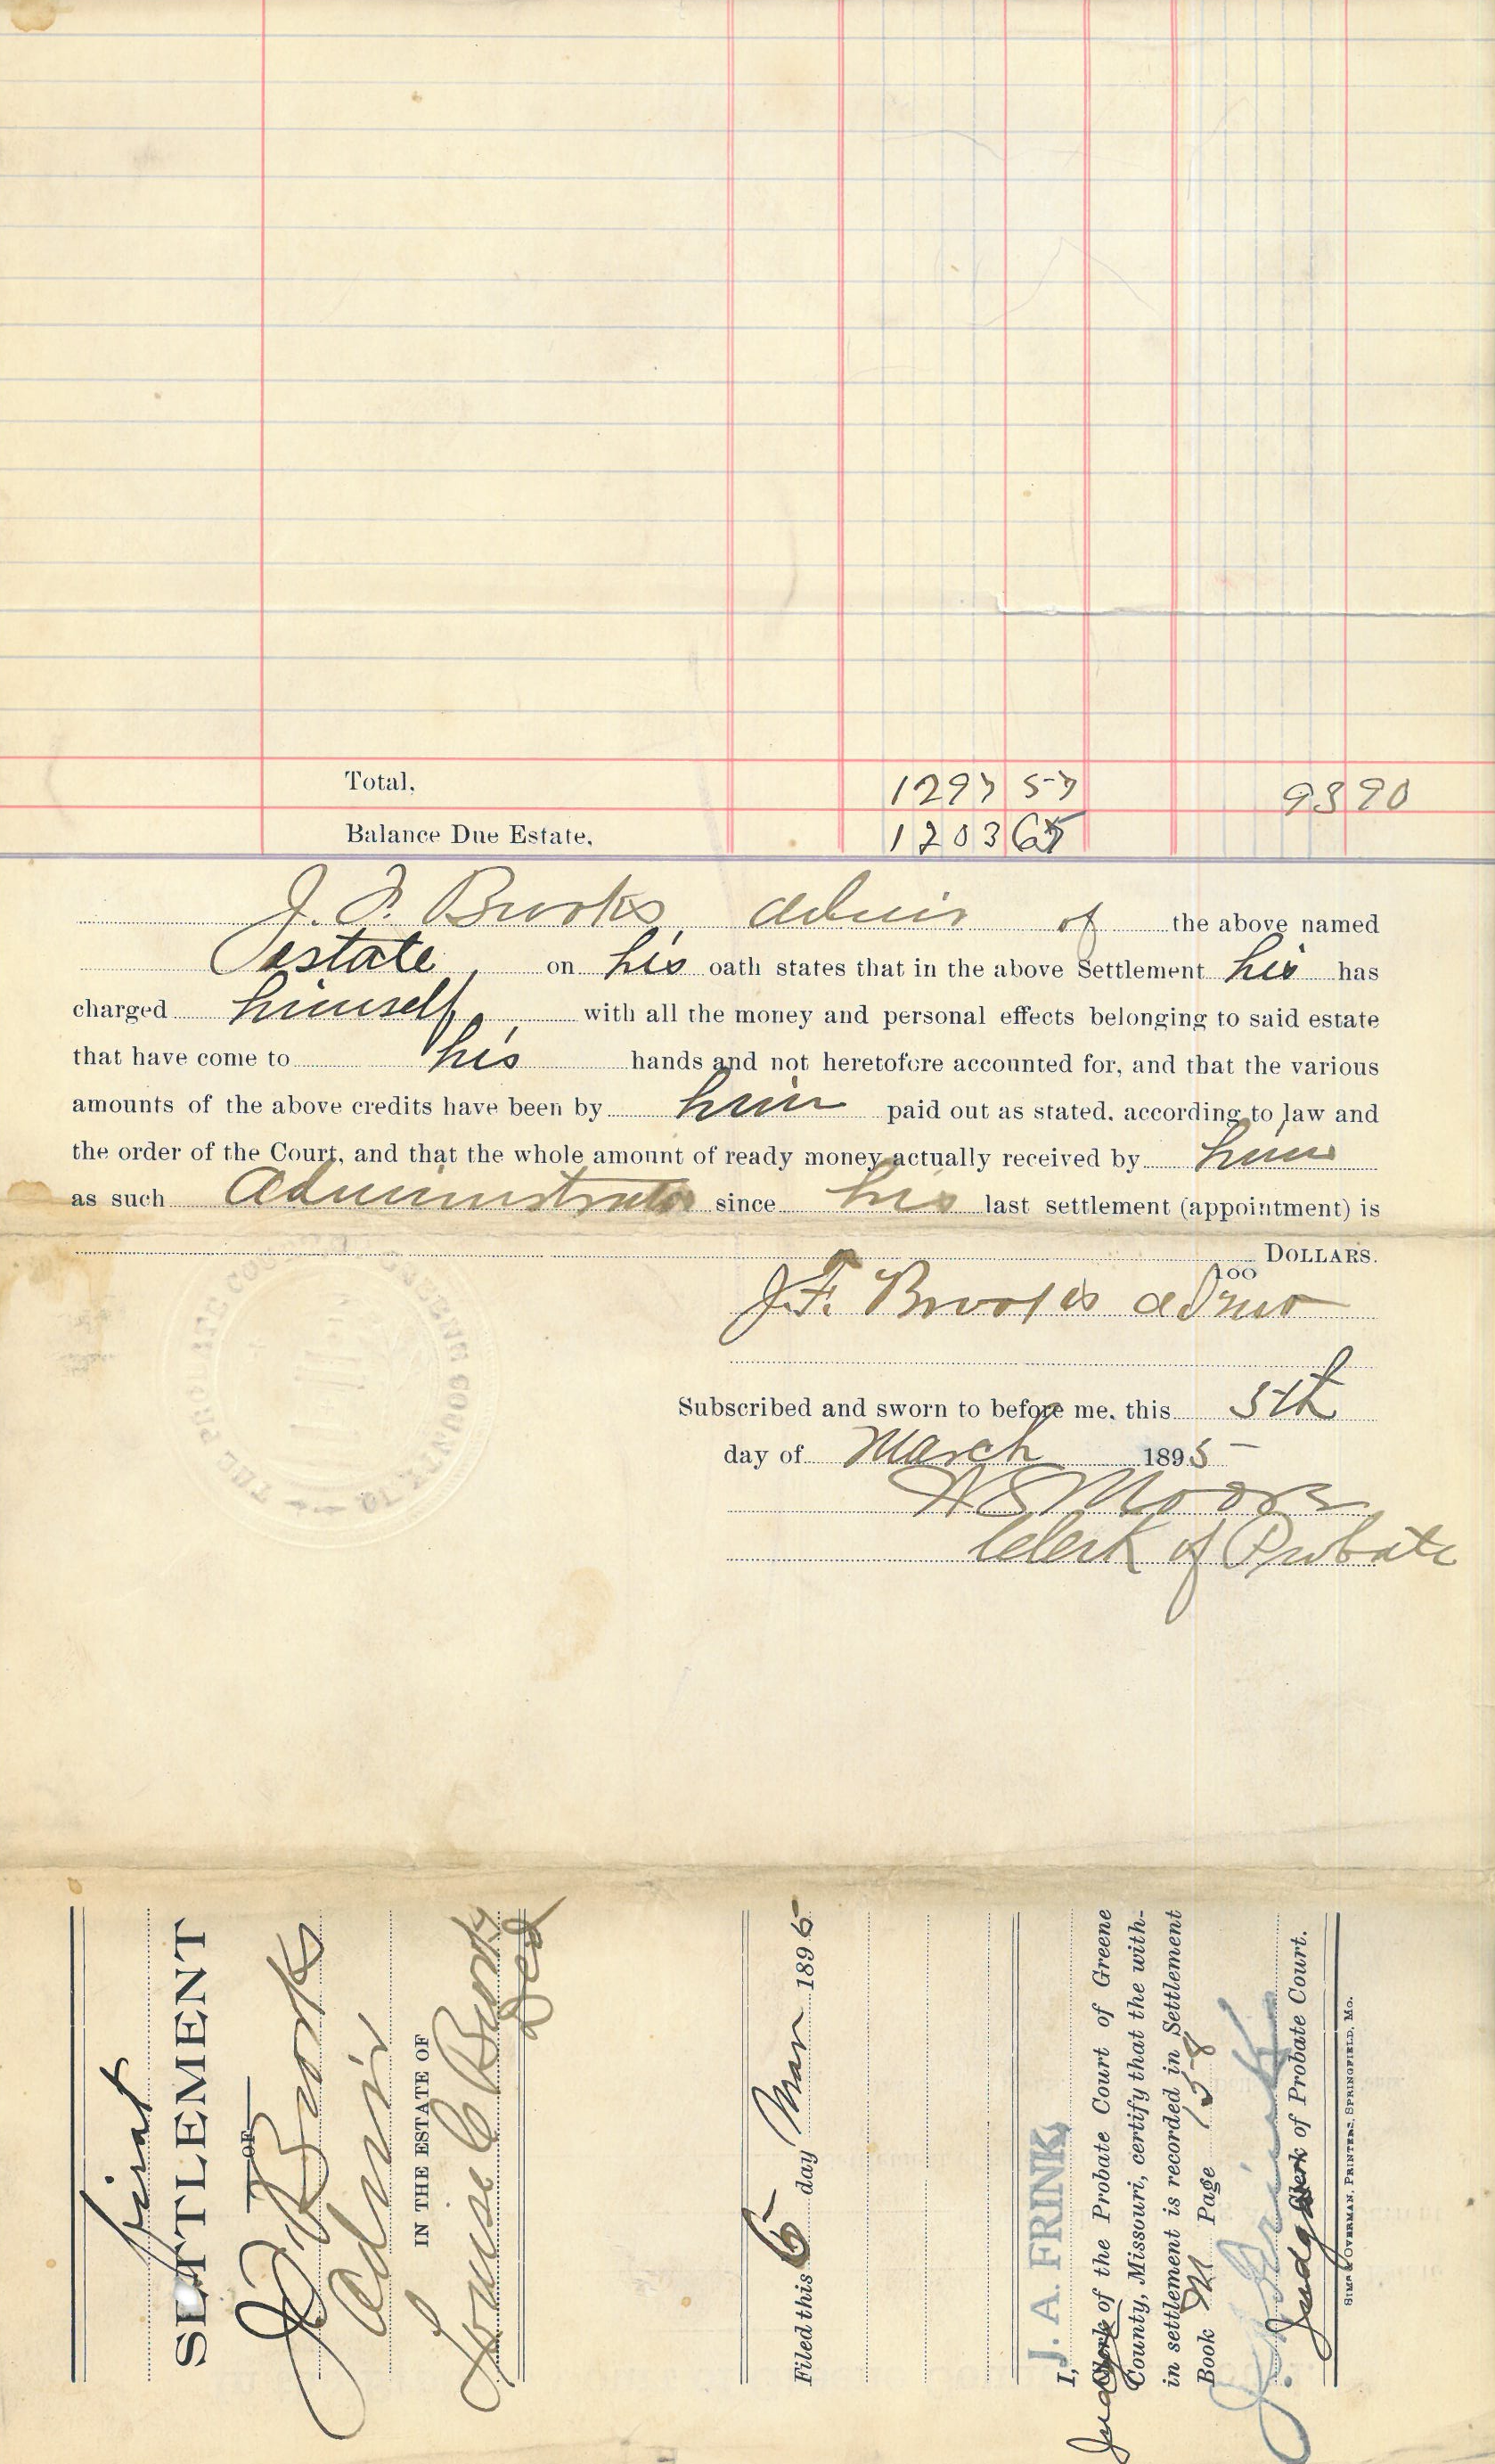 Total, 1297 57 93 90
Balance Due Estate, 1203 67
J. F. Brooks, admir of the above named
estate, on his oath states that in the above Settlement his has
charged himself, with all the money and personal effects belonging to said estate
that have come to his hands and not heretofore accounted for, and that the various
amounts of the above credits have been by him paid out as stated, according to law and
the order of the Court, and that the whole amount of ready money actually received by him
as such Administrator since his last settlement (appointment) is
DOLLARS.
100
J. F. Brooks admr
Subscribed and sworn to before me, this 5th
day of March 1895
Moore
Clerk of Probate
THE PROBATE COURT GREENE COUNTY MO
first
SETTLEMENT
OF
J F Brooks
Admir
IN THE ESTATE OF
Louise C Brooks
Dcd
Filed this 5 day Mar 1895
I, J. A. FRINK,
Judge Clerk of the Probate Court of Greene
County, Missouri, certify that the with-
in settlement is recorded in Settlement
Book M Page 158
J. A. Frink
Judge Clerk of Probate Court.
OVERMAN, PRINTERS, SPRINGFIELD, MO.